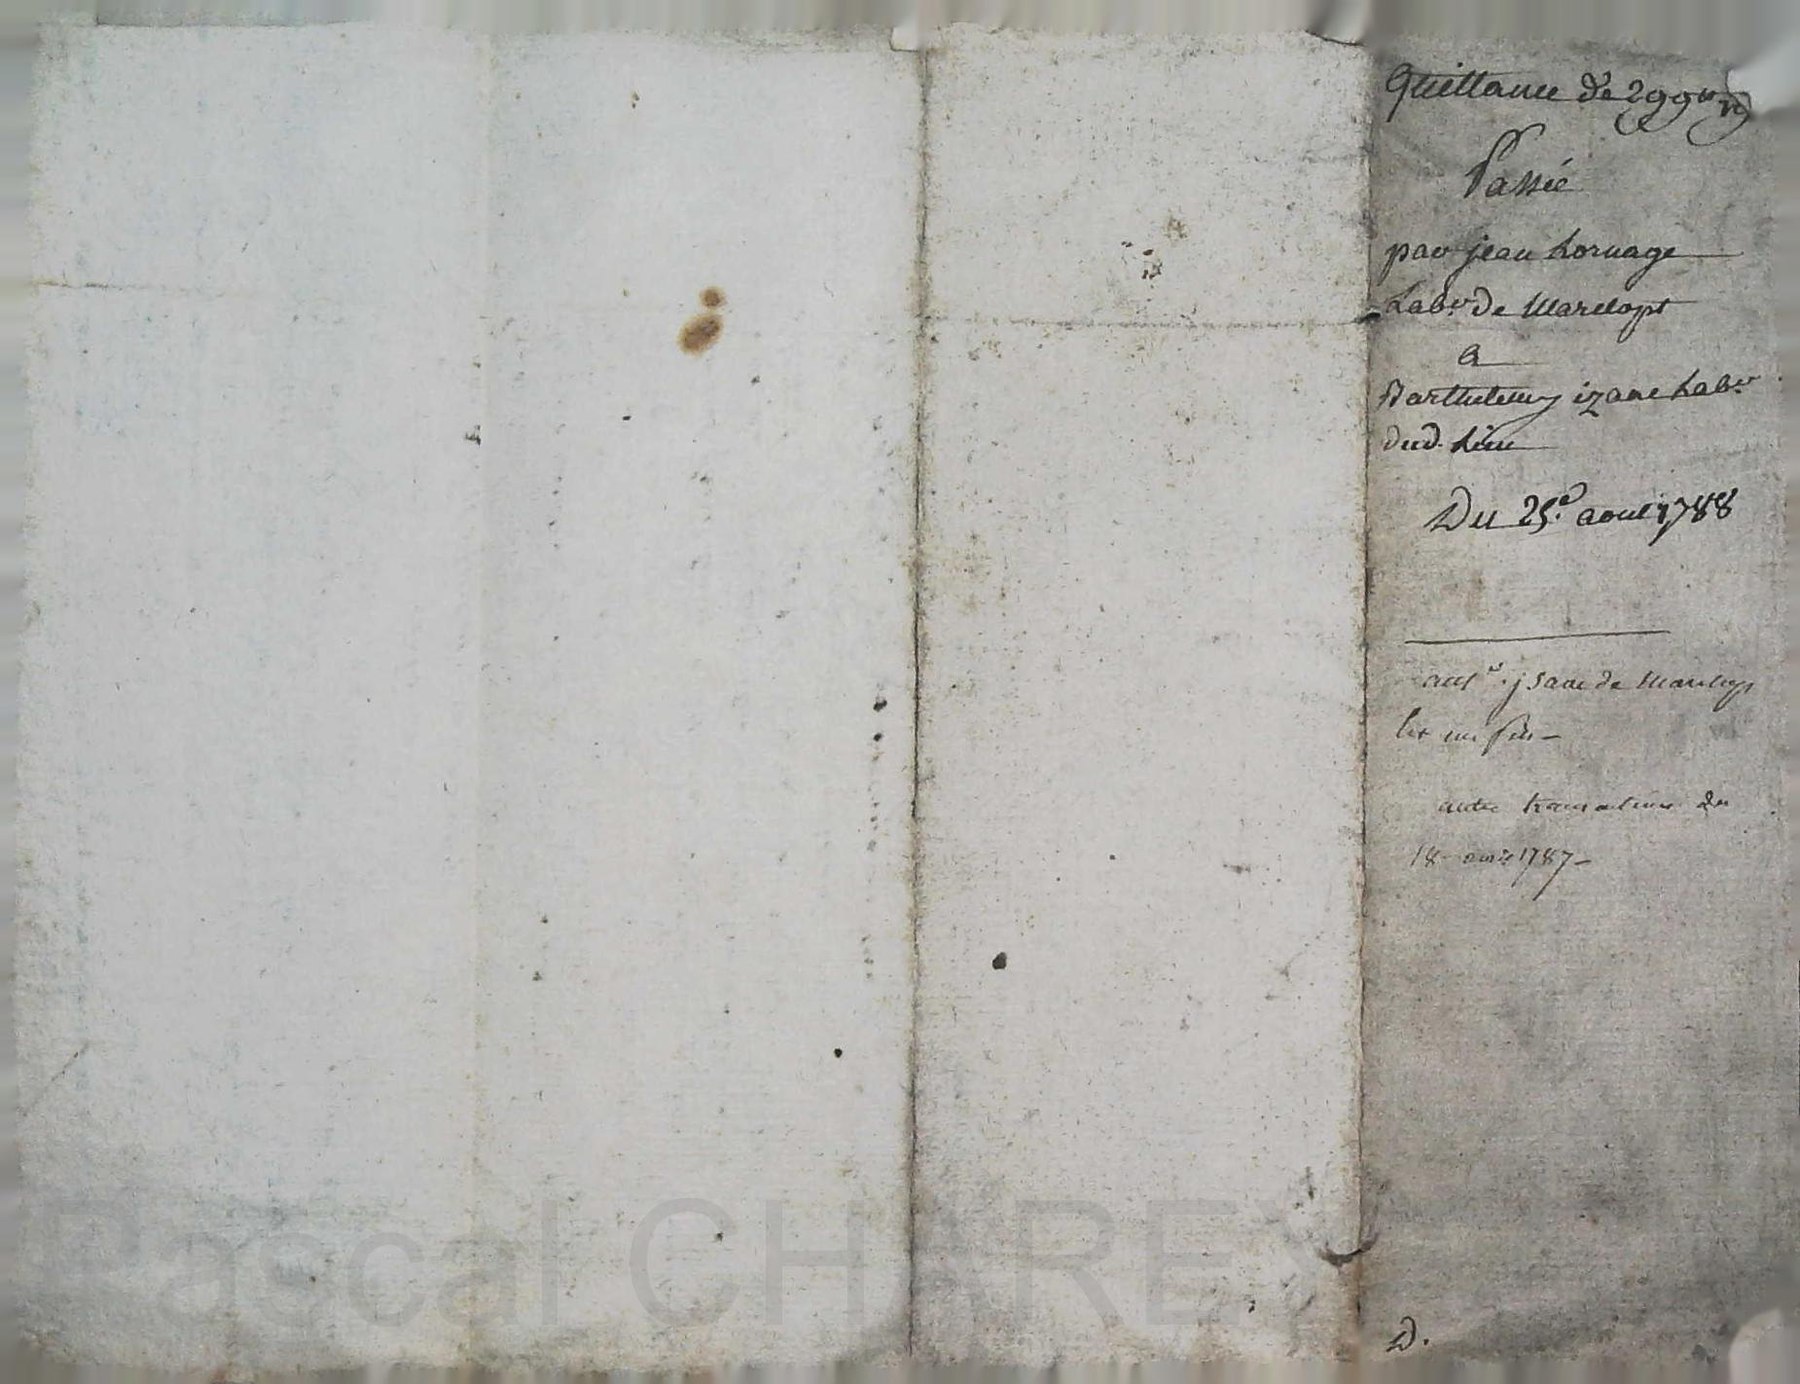 Quittance de 299ᵗᵗ
Passée
par jean hornage
Labʳ de Marclopt
a
Barthelemy izane Labʳ
dud. Lieu
Du 25ᵉ aout 1788
de Marclop
autre transaction du
18 1787
D.
Pascal CHAREY